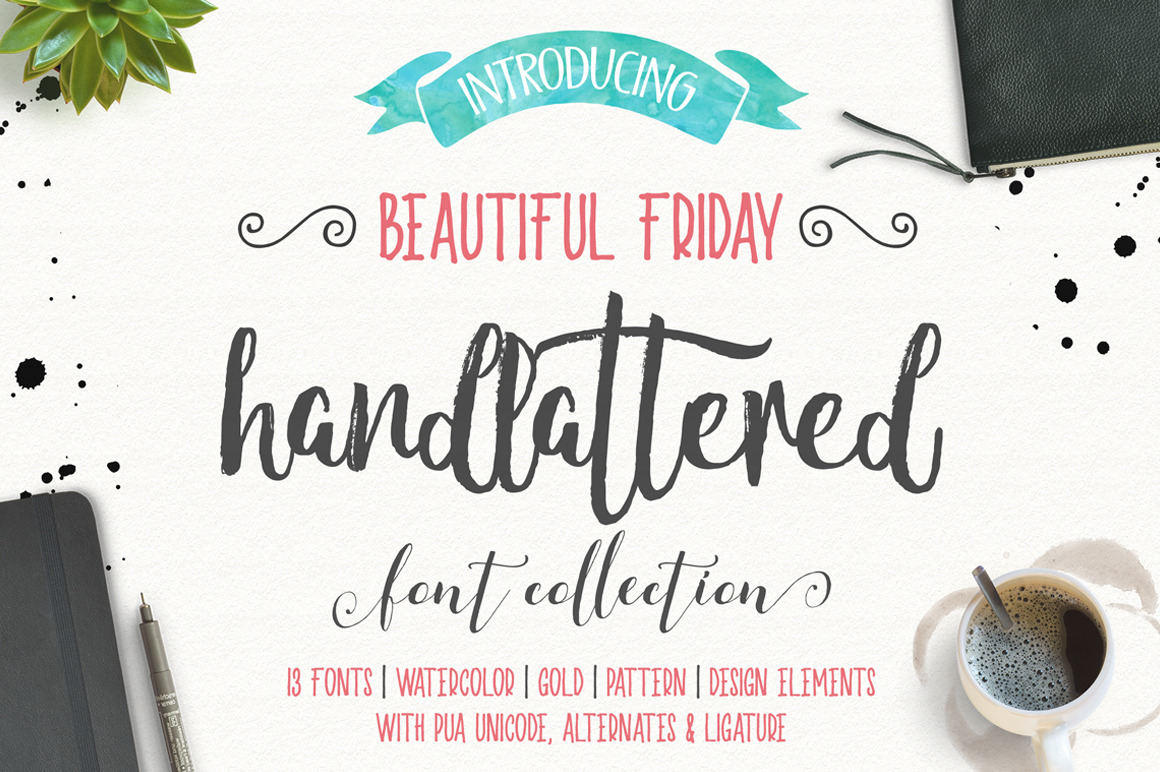 INTRODUCING
BEAUTIFUL FRIDAY
handlattered
font collection
13 FONTS | WATERCOLOR | GOLD | PATTERN | DESIGN ELEMENTS
WITH PUA UNICODE, ALTERNATES & LIGATURE